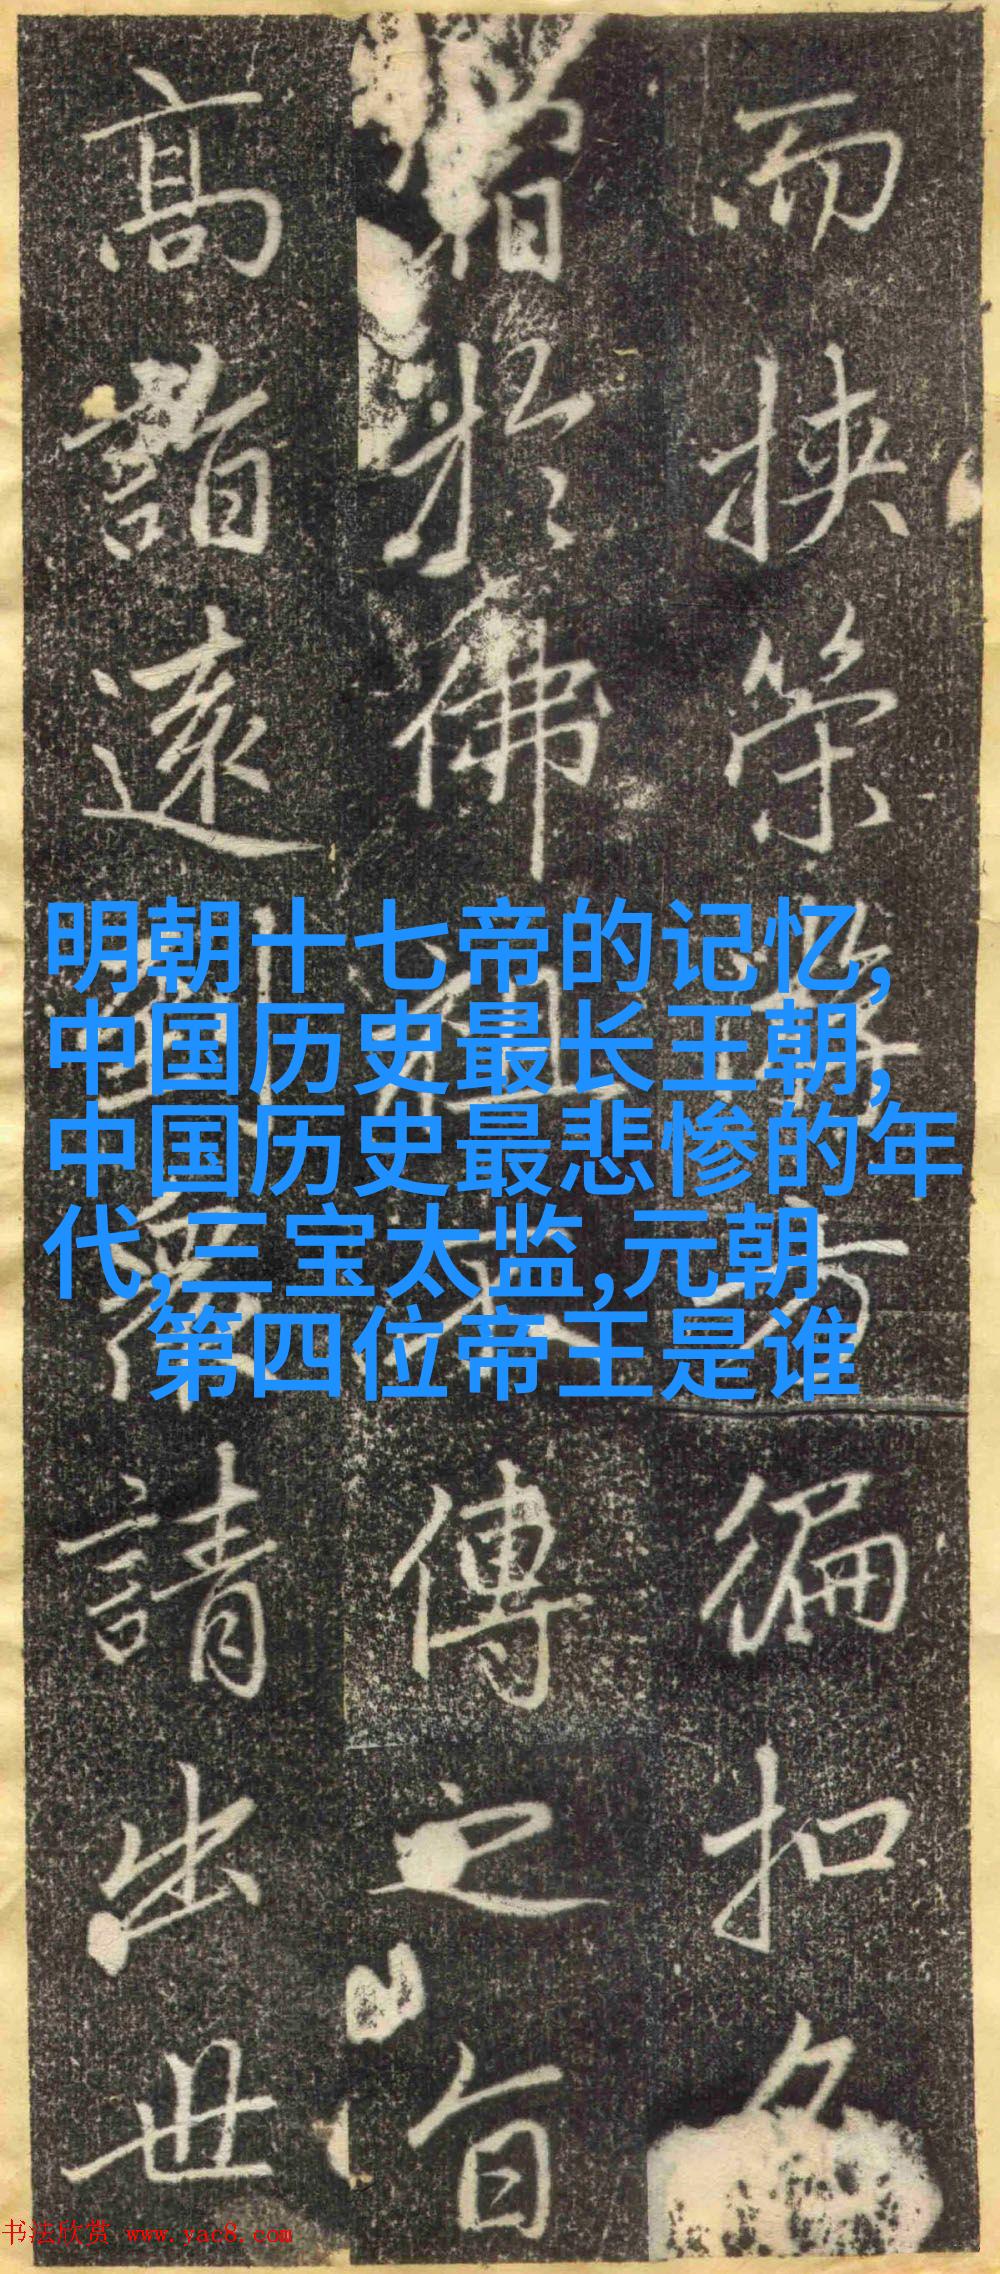 而挾策方徧扣
於佛祖不傳之旨
高詣遠請出世
明朝十七帝的记忆,
中国历史最长王朝,
中国历史最悲惨的年
代,三宝太监,元朝
第四位帝王是谁
书法欣赏 www.yac8.com